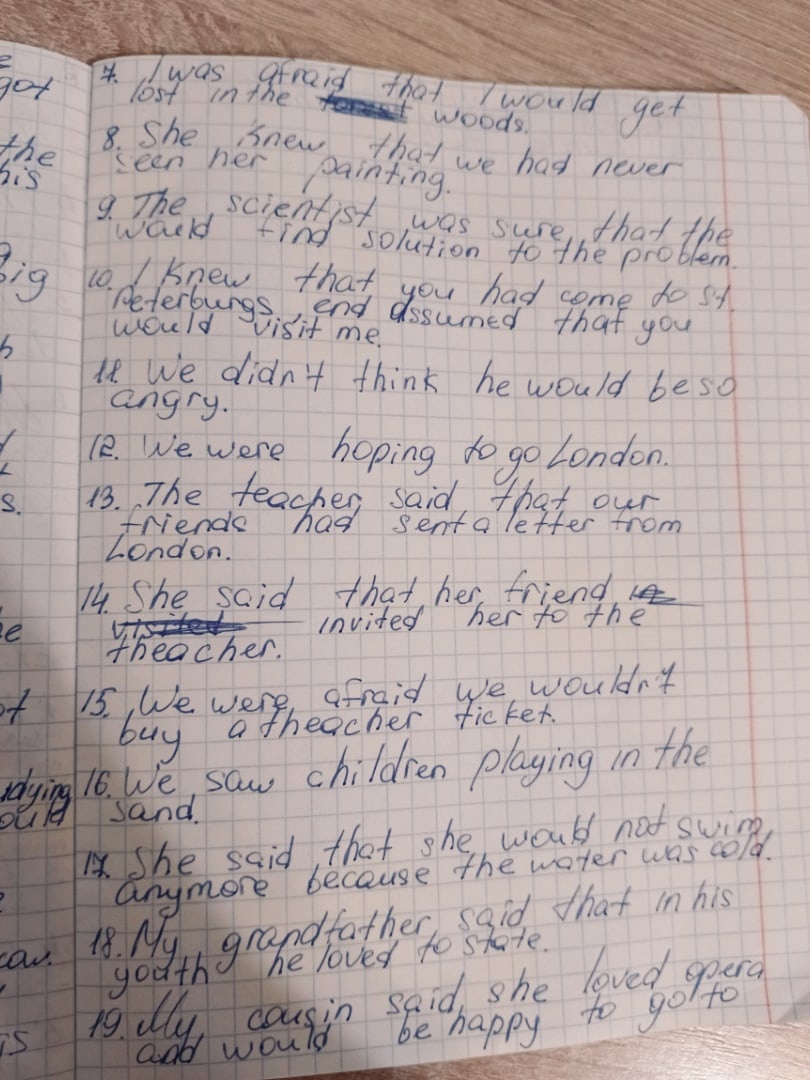 e
got
the
his
big
s.
e
ot
udying
ould
cau.
7. I was afraid that I would get
lost in the woods.
8. She knew that we had never
seen her painting.
9. The scientist was sure that the
would find solution to the problem.
10. I knew that you had come to st.
Peterburgs, end assumed that you
would visit me.
11. We didn't think he would be so
angry.
12. We were hoping to go London.
13. The teacher said that our
friends had sent a letter from
London.
14. She said that her friend
visited invited her to the
theacher.
15. We were afraid we wouldn't
buy a theacher ticket.
16. We saw children playing in the
sand.
17. She said that she would not swim
anymore because the water was cold.
18. My grandfather said that in his
youth he loved to state.
19. My cousin said she loved opera
and would be happy to go to